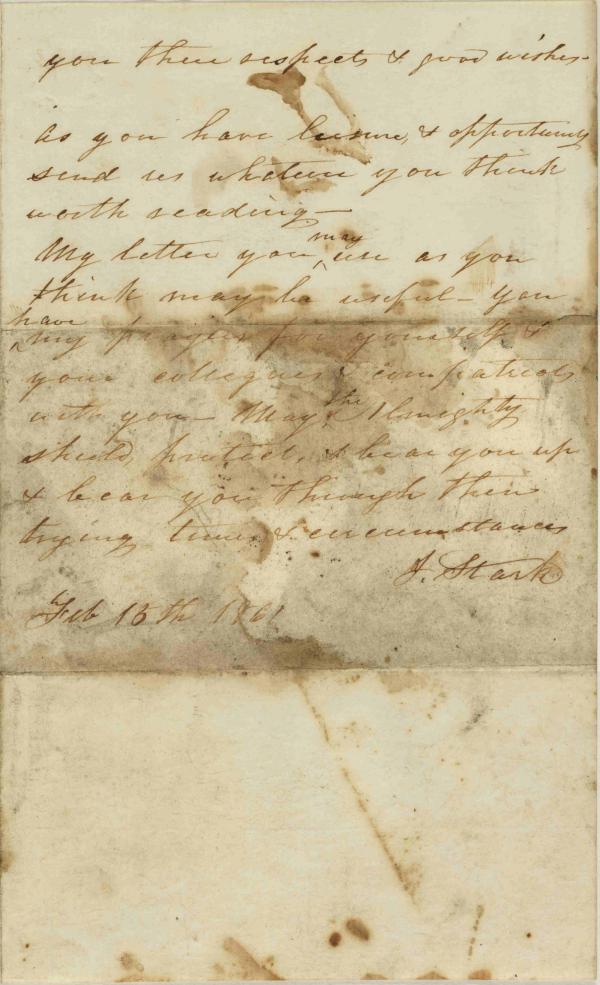 you their respects & good wishes-
As you have leisure, & opportunity
send us whatever you think
worth reading—
My letter you may use as you
think may be useful- you
have my prayers for yourself &
your collegues & compatriots
with you May the Almighty
shield, protect, & bear you up
& bear you through these
trying times & circumstances
J. Stark
Feb 15th 1861